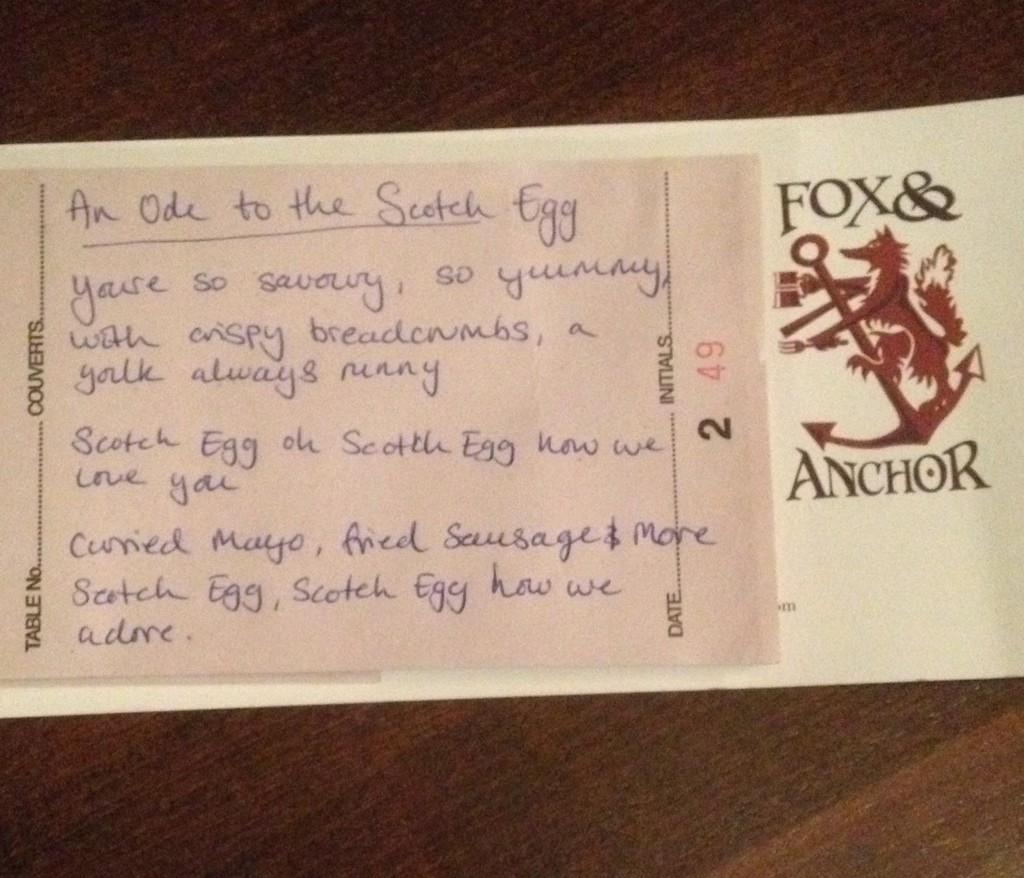 An Ode to the Scotch Egg
you're so savoury, so yummmy,
with crispy breadcrumbs, a
yolk always runny
Scotch Egg oh Scotch Egg how we
love you
Curried Mayo, fried Sausage & More
Scotch Egg, Scotch Egg how we
adore.
TABLE No. COUVERTS
DATE INITIALS
2 49
FOX &
ANCHOR